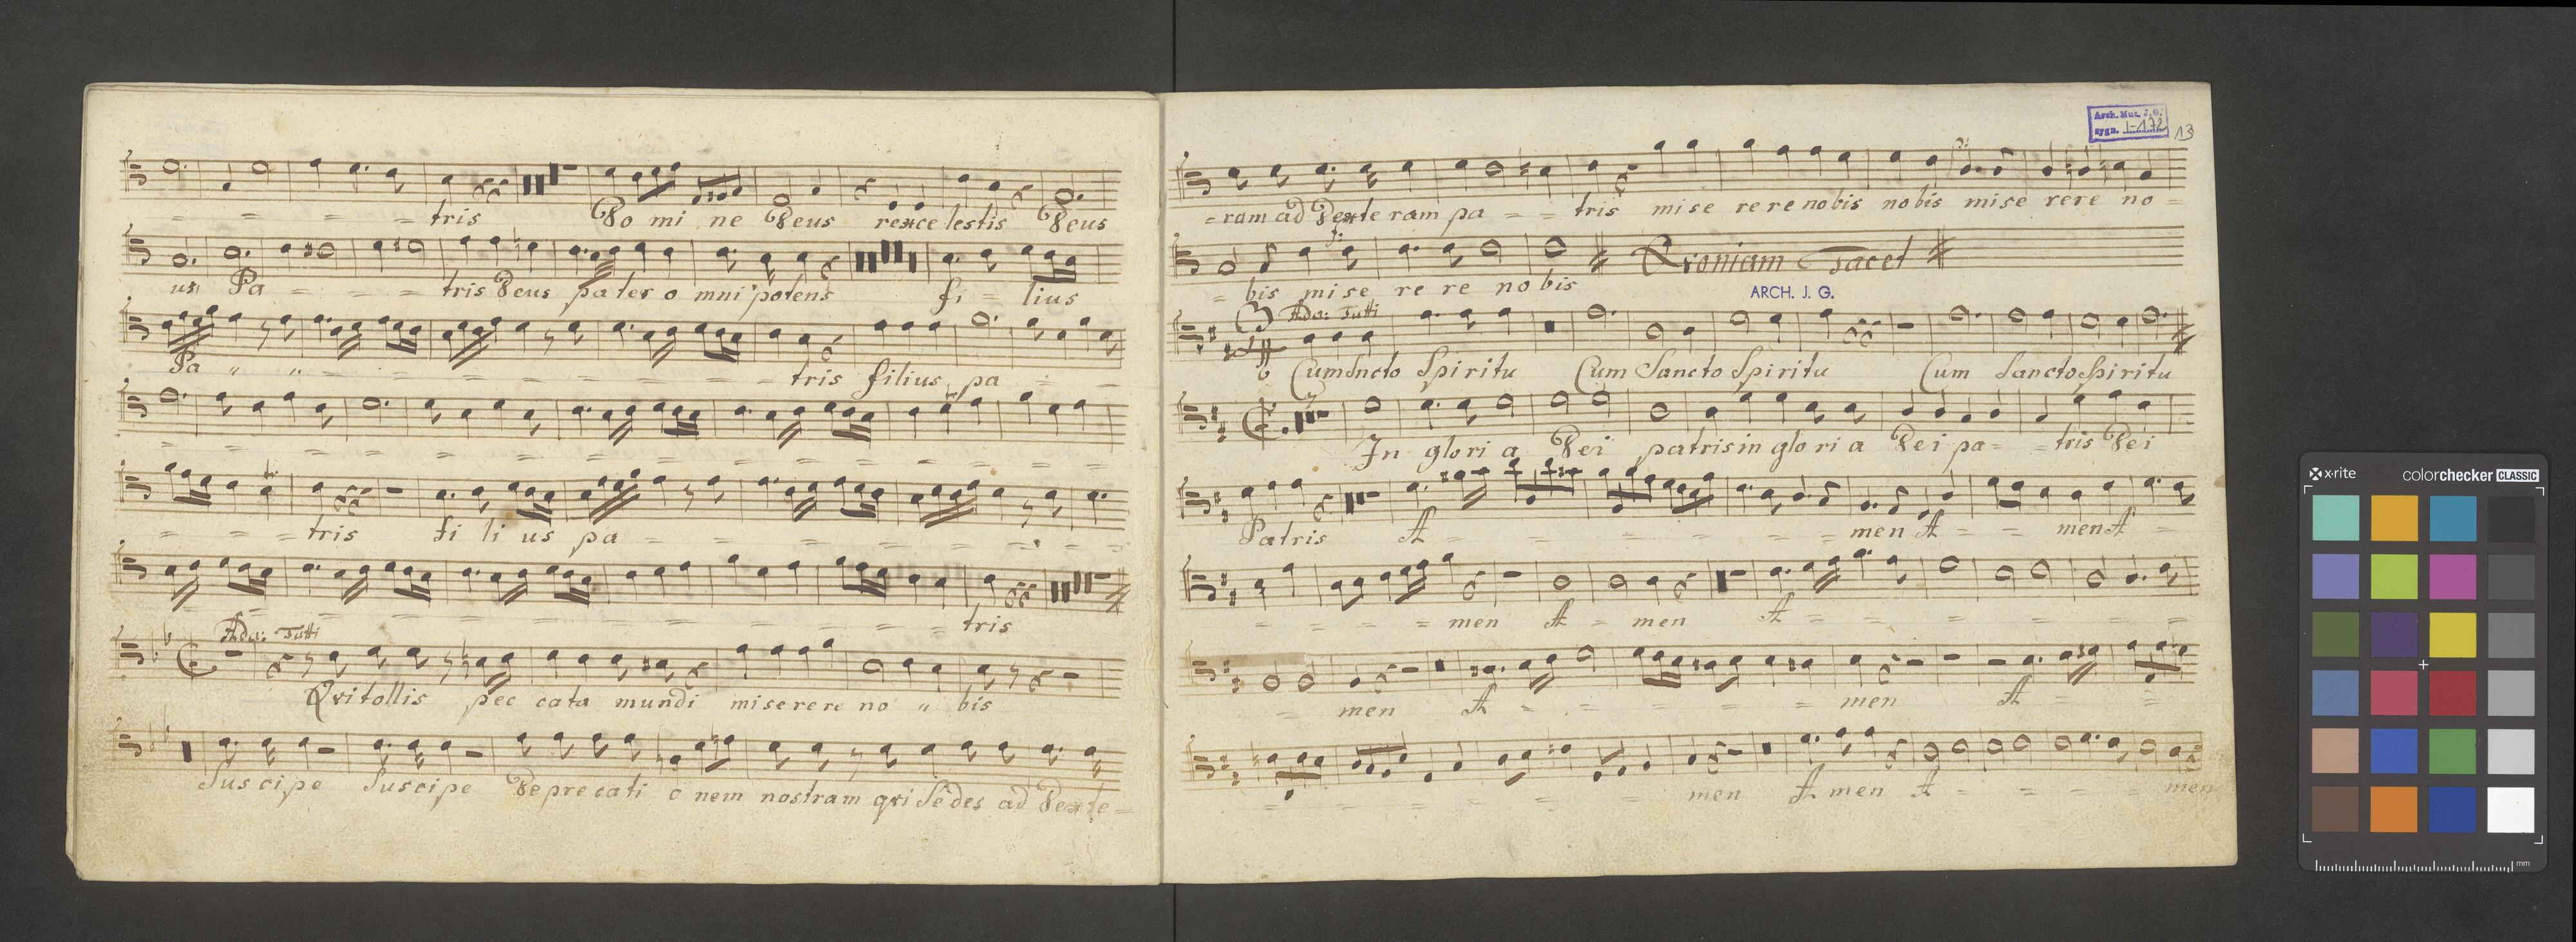 = = = = tris Do mi ne Deus rex ce lestis Deus
us Pa = = = tris Deus pa ter o mni potens fi = lius
Pa " " = = = = = = = = tris filius pa = =
= = = = = = = = = = = = =
= = = tris fi li us pa = = = = = = =
= = = = = = = = = = tris
Ado: Tutti
Qvi tollis pec cata mundi mise rere no " bis
Suscipe Suscipe Depre cati o nem nostram qvi Sedes ad Dexte =
Arch. Muz. J. G.
sygn. I-172
13
= ram ad Dexte ram pa = = tris mise re re nobis nobis mise rere no =
f:
= bis mi se re re no bis Qvoniam Tacet
ARCH. J. G.
3 Ado: Tutti
Cum Sncto Spiritu Cum Sancto Spiritu Cum Sancto Spiritu
7
In glori a Dei patris in glori a Dei pa = = tris Dei
Patris A = = = = = = men A = = men A =
= = = = men A = men A = = = = = =
= men A = = = = = men A = = =
= = = = = = = men A men A = = = = men
x·rite colorchecker CLASSIC
mm